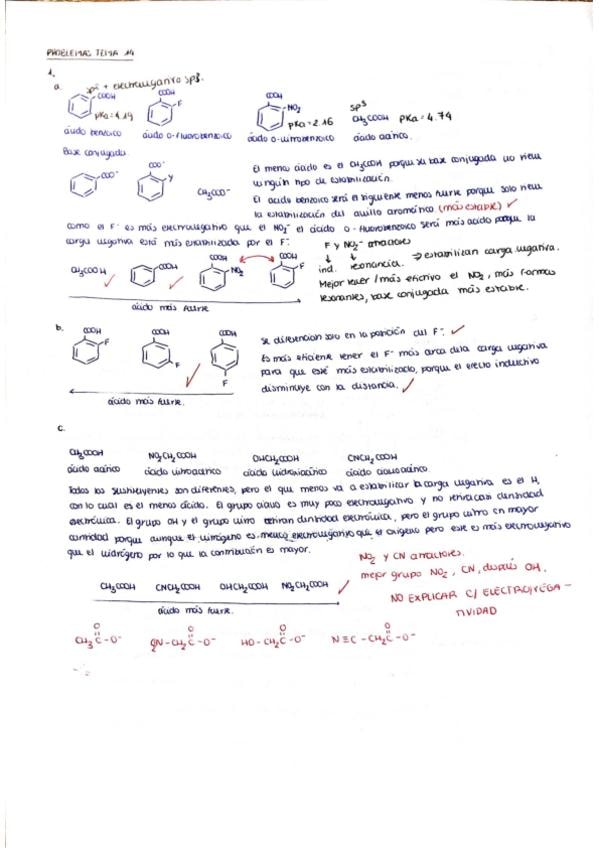 PROBLEMAS TEMA 14
1.
a. sp² + electronegativo sp³.
COOH
pKa = 4.19
ácido benzoico
COOH
F
ácido o-fluorobenzoico
COOH
NO₂
pKa = 2.16
ácido o-nitrobenzoico
sp³
CH₃COOH pKa = 4.74
ácido acético.
Base conjugada
COO⁻
COO⁻
CH₃COO⁻
El menos ácido es el CH₃COOH porque su base conjugada no tiene
ningún tipo de estabilización.
El ácido benzoico será el siguiente menos fuerte porque solo tiene
la estabilización del anillo aromático (más estable) ✓
como el F⁻ es más electronegativo que el NO₂⁻ el ácido o-fluorobenzoico será más ácido porque la
carga negativa está más estabilizada por el F⁻.
F y NO₂⁻ atractores
ind. resonancia. ⇒ estabilizan carga negativa.
Mejor tener / más efectivo el NO₂, más formas
resonantes, base conjugada más estable.
CH₃COOH
COOH
COOH
NO₂
COOH
F
ácido más fuerte
b.
COOH
F
COOH
F
COOH
F
ácido más fuerte.
Se diferencian solo en la posición del F⁻. ✓
Es más eficiente tener el F⁻ más cerca de la carga negativa
para que esté más estabilizado, porque el efecto inductivo
disminuye con la distancia. ✓
c.
CH₃COOH NO₂CH₂COOH OHCH₂COOH CNCH₂COOH
ácido acético ácido nitroacético ácido hidroxiacético ácido cianoacético.
Todos los sustituyentes son diferentes, pero el que menos va a estabilizar la carga negativa es el H,
con lo cual es el menos ácido. El grupo ciano es muy poco electronegativo y no retira casi densidad
electrónica. El grupo OH y el grupo nitro retiran densidad electrónica, pero el grupo nitro en mayor
cantidad porque aunque el nitrógeno es menos electronegativo que el oxígeno pero este es más electronegativo
que el hidrógeno por lo que la contribución es mayor.
NO₂ y CN atractores.
mejor grupo NO₂, CN, después OH.
NO EXPLICAR C/ ELECTRONEGA-
TIVIDAD
CH₃COOH CNCH₂COOH OHCH₂COOH NO₂CH₂COOH
ácido más fuerte.
CH₃C-O⁻ O₂N-CH₂C-O⁻ HO-CH₂C-O⁻ N≡C-CH₂C-O⁻